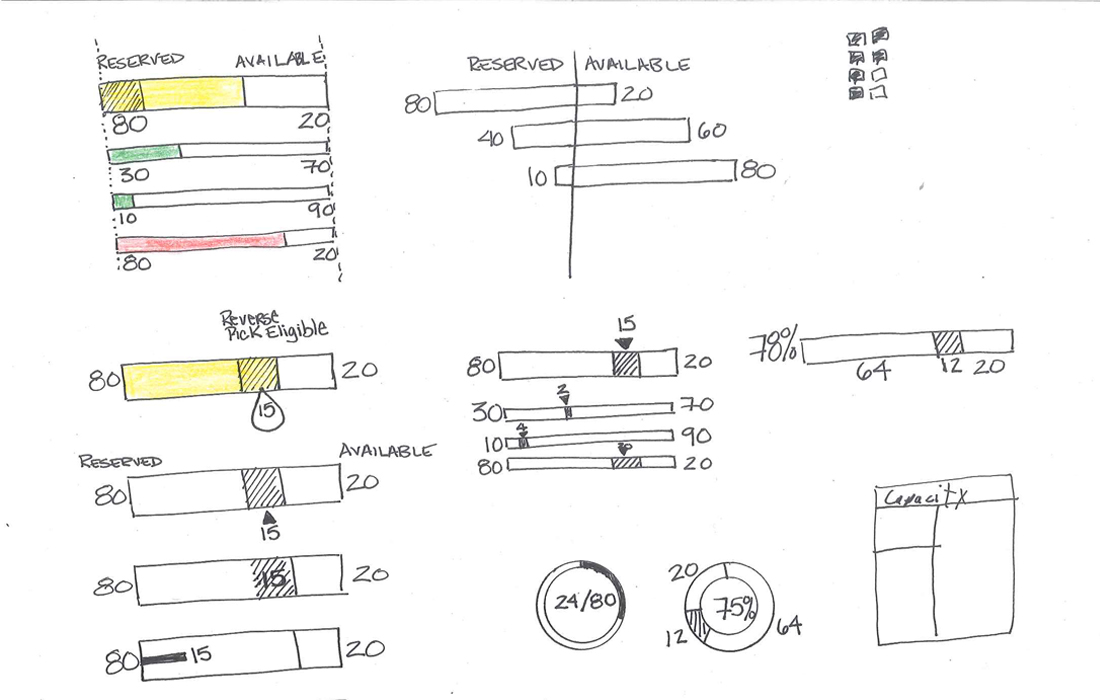 RESERVED AVAILABLE
80 20
30 70
10 90
80 20
RESERVED AVAILABLE
80 20
40 60
10 80
Reverse
Pick Eligible
80 20
15
RESERVED AVAILABLE
80 20
15
80 15 20
80 15 20
15
80 20
2
30 70
4
10 90
80 20
78%
64 12 20
24/80
20
75%
12 64
Capacity